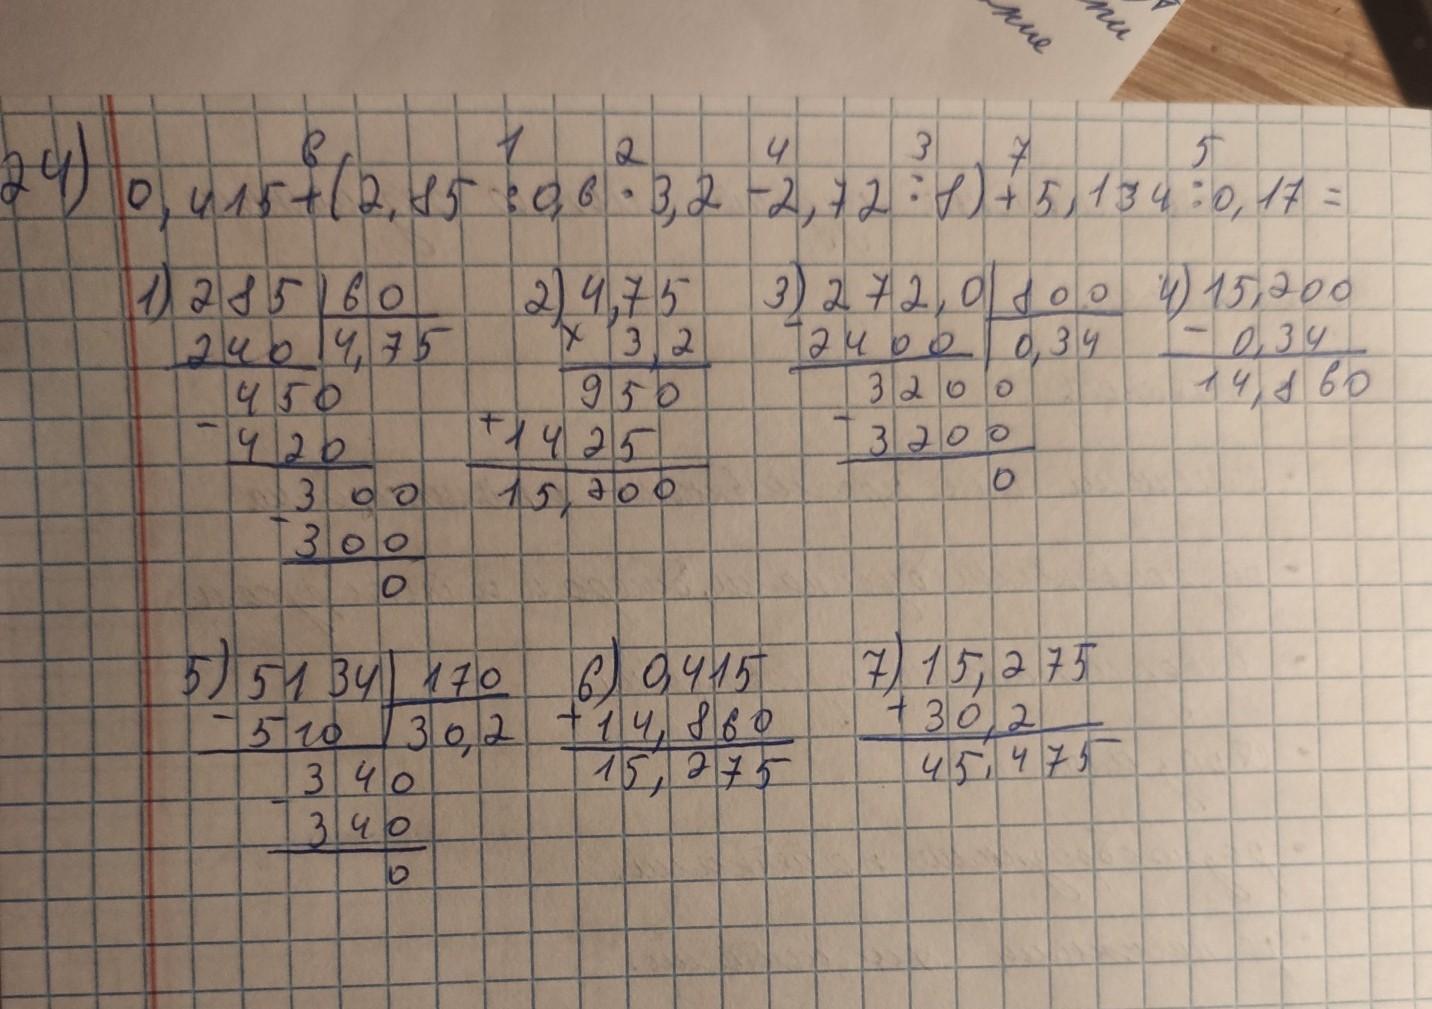 ние
ти
6 1 2 4 3 7 5
24) 0,415+(2,85:0,6·3,2-2,72:8)+5,134:0,17=
1) 285 | 60 2) 4,75 3) 272,0 | 800 4) 15,200
240 | 4,75 × 3,2 - 2400 | 0,34 - 0,34
450 950 3200 14,860
- 420 + 1425 - 3200
300 15,200 0
- 300
0
5) 5134 | 170 6) 0,415 7) 15,275
- 510 | 30,2 + 14,860 + 30,2
340 15,275 45,475
- 340
0